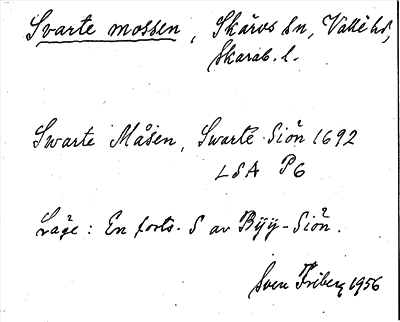 Svarte mossen, Skärvs sn, Valle hd,
Skarab. l.
Swarte Måsen, Swarte Siön 1692
LSA P6
Läge: En forts. S av Byy-Siön.
Sven Friberg 1956